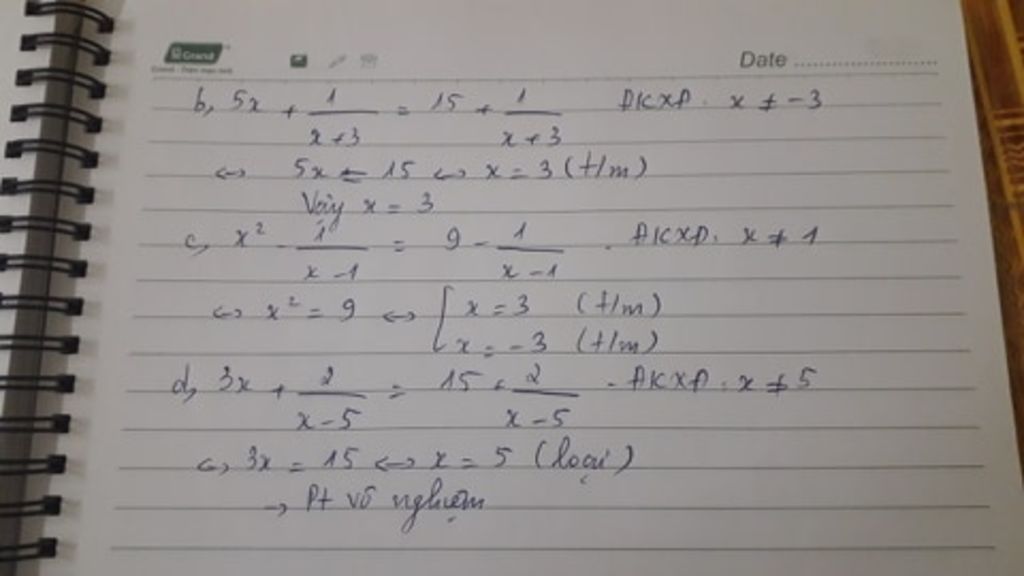 Grand
Date
b, 5x + 1/(x+3) = 15 + 1/(x+3) ĐKXĐ: x ≠ -3
<=> 5x = 15 <=> x = 3 (t/m)
Vậy x = 3
c, x² - 1/(x-1) = 9 - 1/(x-1) . ĐKXĐ: x ≠ 1
<=> x² = 9 <=> [ x = 3 (t/m)
x = -3 (t/m)
d, 3x + 2/(x-5) = 15 + 2/(x-5) - ĐKXĐ: x ≠ 5
<=> 3x = 15 <=> x = 5 (loại)
-> Pt vô nghiệm